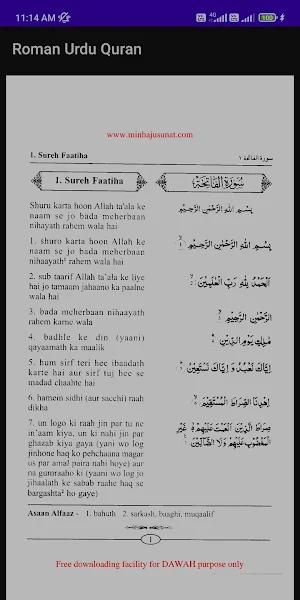 11:14 AM
100
Roman Urdu Quran
www.minhajusunat.com
1. Sureh Faatiha
سورة الفاتحة ١
1. Sureh Faatiha
سُوْرَةُ الْفَاتِحَةِ
Shuru karta hoon Allah ta'ala ke
naam se jo bada meherbaan
nihayath rahem wala hai
بِسْمِ اللهِ الرَّحْمٰنِ الرَّحِيْمِ
1. shuro karta hoon Allah ke
naam se jo bada meherbaan
nihaayath² rahem wala hai
بِسْمِ اللهِ الرَّحْمٰنِ الرَّحِيْمِ ١
2. sub taarif Allah ta'ala ke liye
hai jo tamaam jahaano ka paalne
wala hai
اَلْحَمْدُ لِلّٰهِ رَبِّ الْعٰلَمِيْنَ ٢
3. bada meherbaan nihaayath
rahem karne wala
الرَّحْمٰنِ الرَّحِيْمِ ٣
4. badhle ke din (yaani)
qayaamath ka maalik
مٰلِكِ يَوْمِ الدِّيْنِ ٤
5. hum sirf teri hee ibaadath
karte hai aur sirf tuj hee se
madad chaahte hai
اِيَّاكَ نَعْبُدُ وَ اِيَّاكَ نَسْتَعِيْنُ ٥
6. hamein sidhi (aur sacchi) raah
dikha
اِهْدِنَا الصِّرَاطَ الْمُسْتَقِيْمَ ٦
7. un logo ki raah jin par tu ne
in'aam kiya, un ki nahi jin par
ghazab kiya gaya (yani wo log
jinhone haq ko pehchaana magar
us par amal paira nahi hoye) aur
na gumraaho ki (yaani wo log jo
jihaalath ke sabab raahe haq se
bargashta² ho gaye)
صِرَاطَ الَّذِيْنَ اَنْعَمْتَ عَلَيْهِمْ غَيْرِ
الْمَغْضُوْبِ عَلَيْهِمْ وَلَا الضَّآلِّيْنَ ٧
Asaan Alfaaz - 1. bahuth 2. sarkash, baaghi, muqaalif
1
Free downloading facility for DAWAH purpose only